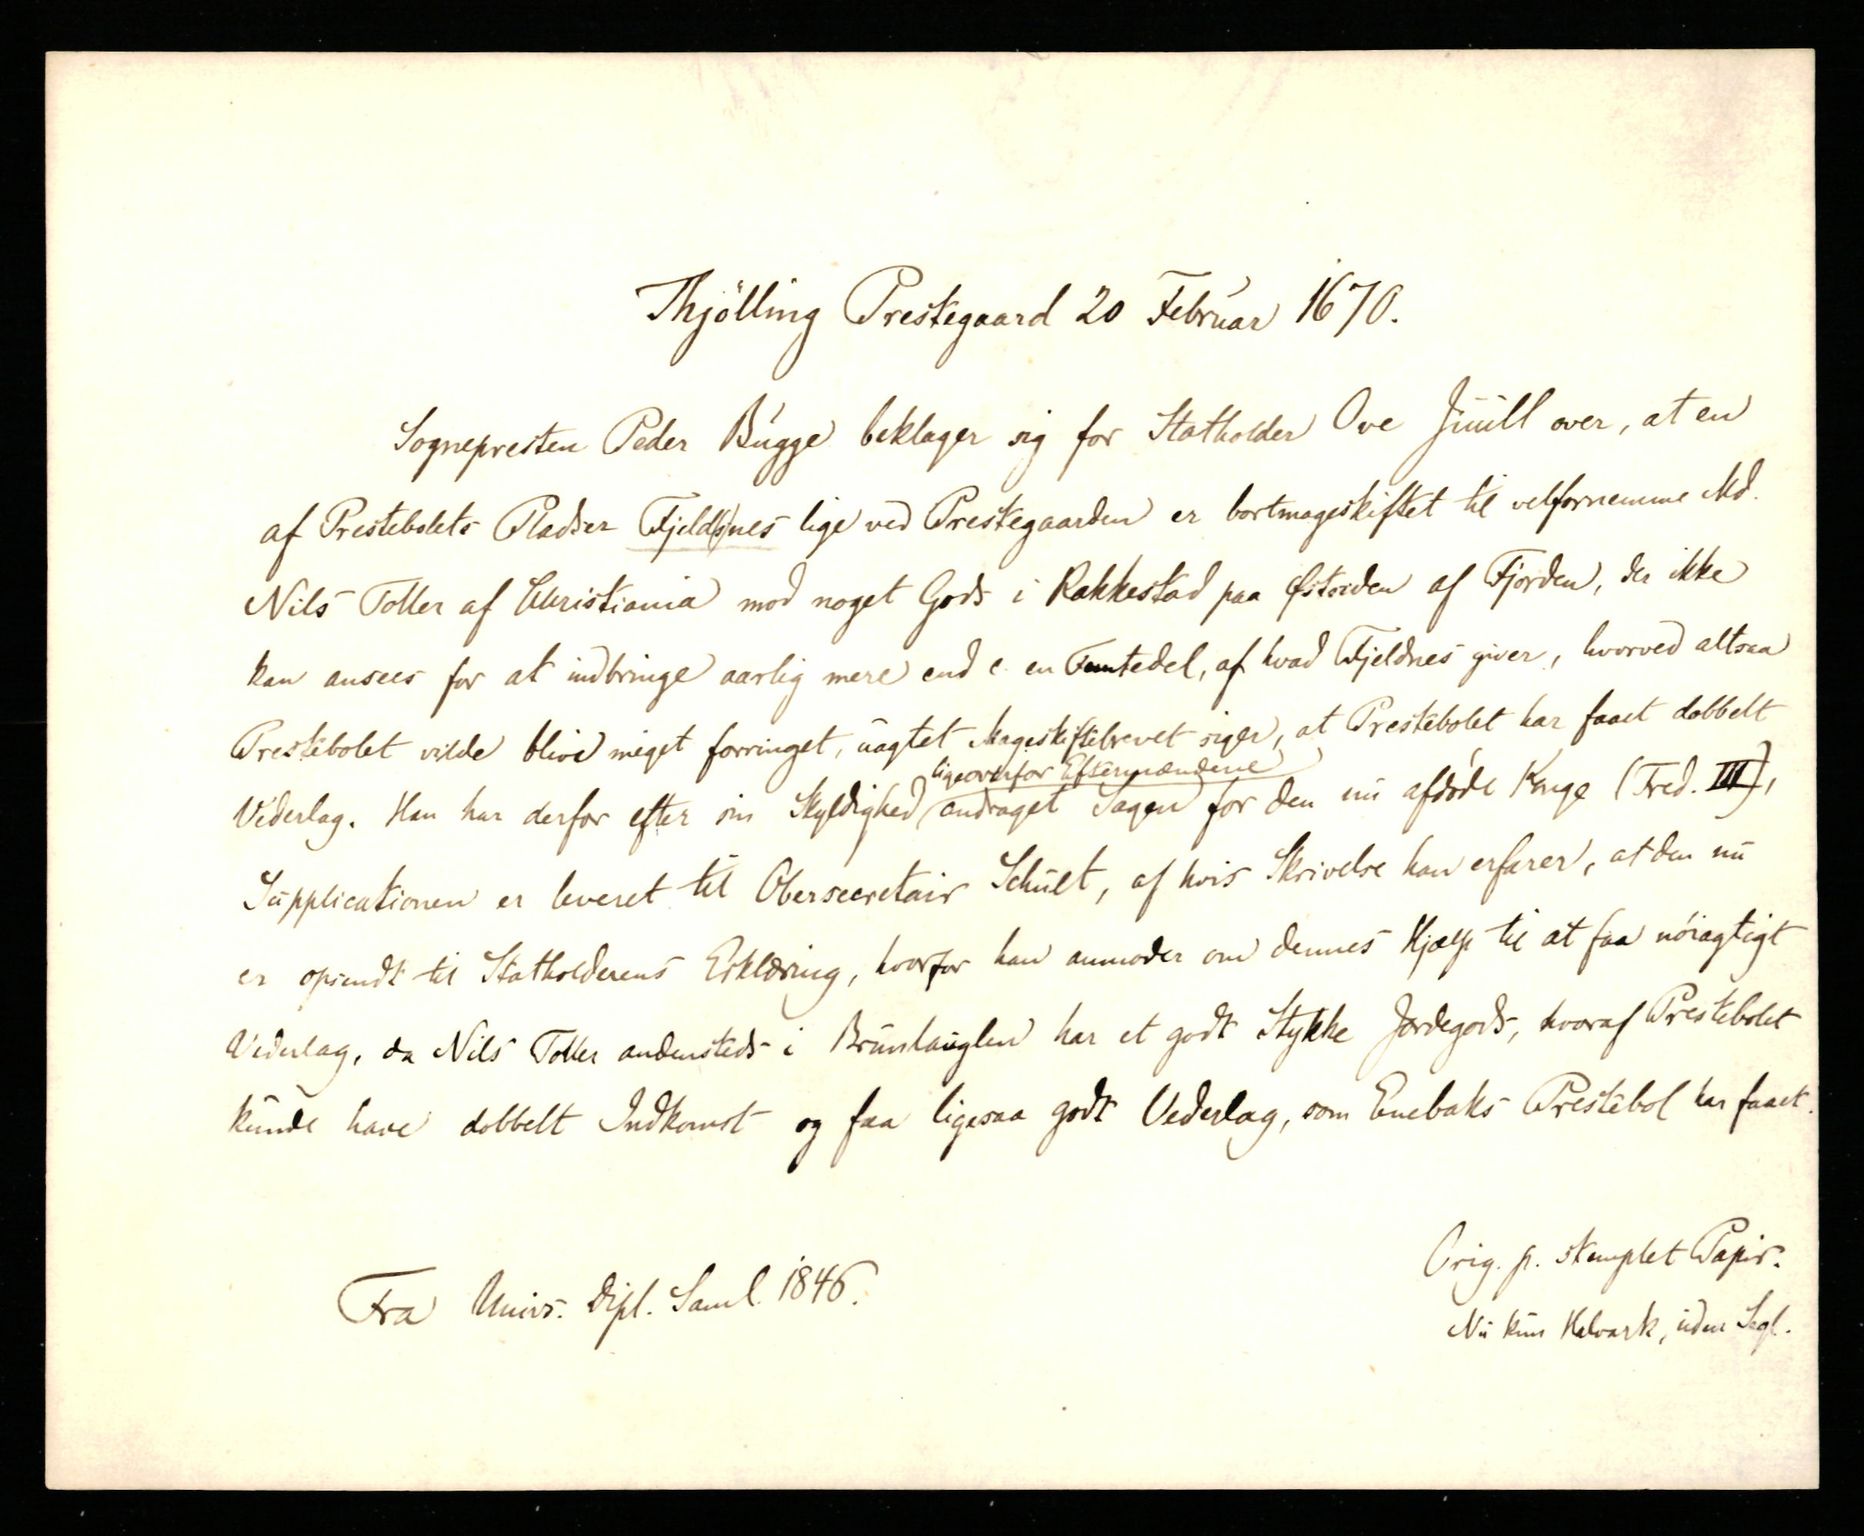 Thjölling Prestegaard 20 Februar 1670.
Sognepresten Peder Bugge beklager sig for Statholder Ove Juull over, at en
af Prestebolets Pladser Fjeld(s)nes lige ved Prestegaarden er bortmageskiftet til velfornemme Md.
Nils Toller af Christiania mod noget Gods i Rakkestad paa Østsiden af Fjorden, der ikke
kan ansees for at indbringe aarlig mere end c. en Femtedel, af hvad Fjeldnes giver, hvorved altsaa
Prestebolet vilde blive meget forringet, uagtet Mageskiftebrevet siger, at Prestebolet har faaet dobbelt
ligeoverfor Eftermændene
Vederlag. Han har derfor efter sin Skyldighed andraget Sagen for den nu afdøde Konge (Fred. III),
Supplicationen er leveret til Obersecretair Schult, af hvis Skrivelse han erfarer, at den nu
er opsendt til Statholderens Erklæring, hvorfor han anmoder om dennes Hjælp til at faa nöiagtigt
Vederlag, da Nils Toller andensteds i Brunlauglen har et godt Stykke Jordegods, hvoraf Prestebolet
kunde have dobbelt Indkomst og faa ligesaa godt Vederlag, som Enebaks Prestebol har faaet.
Orig. p. stemplet Papir.
Nu kun Halvark, uden Segl.
Fra Univs. Dipl. Saml. 1846.